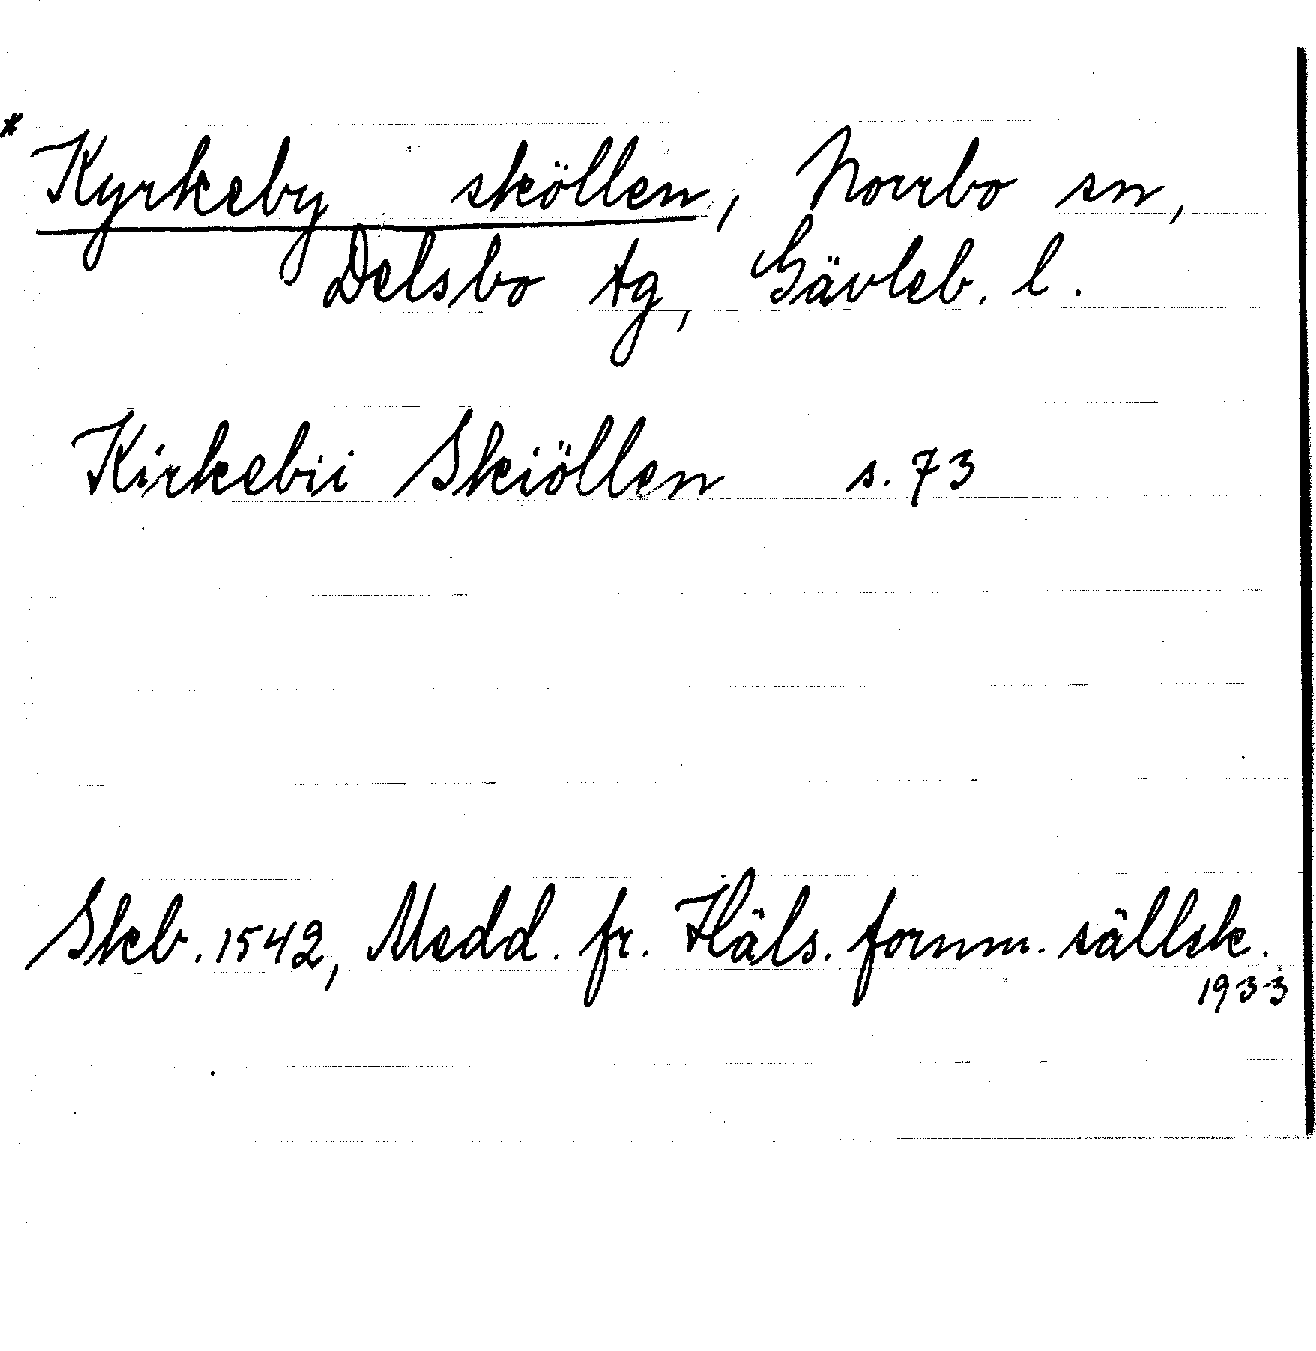 * Kyrkeby sköllen, Norrbo sn,
Delsbo tg, Gävleb. l.
Kirkebii Skiöllen s. 73
Skb. 1542, Medd. fr. Häls. fornm. sällsk.
1933